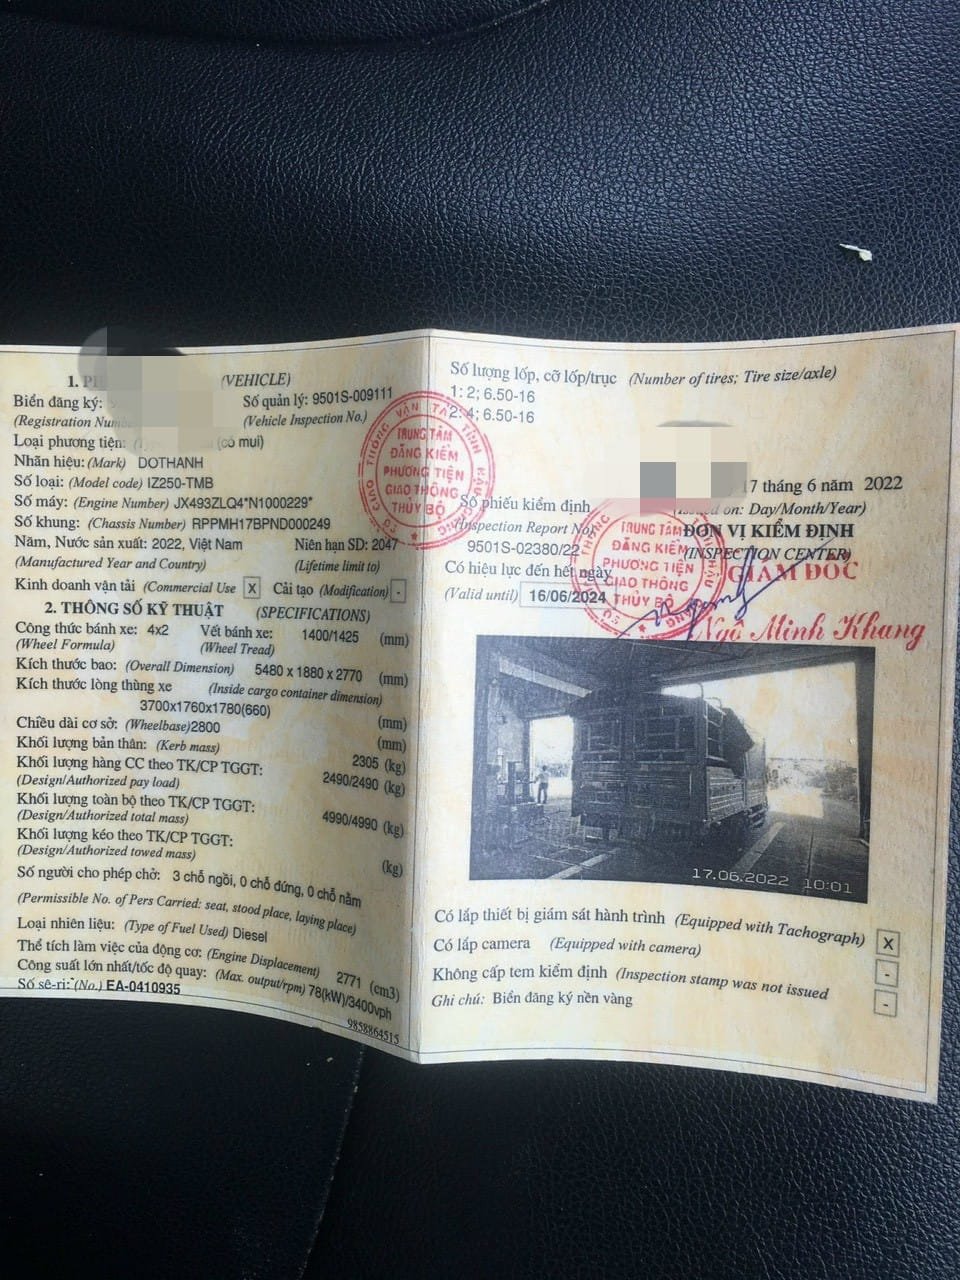 1. 
(VEHICLE)
Biển đăng ký:
Số quản lý: 9501S-009111
(Registration
(Vehicle Inspection No.)
Loại phương tiện: (có mui)
Nhãn hiệu: (Mark) DOTHANH
Số loại: (Model code) IZ250-TMB
Số máy: (Engine Number) JX493ZLQ4*N1000229*
Số khung: (Chassis Number) RPPMH17BPND000249
Năm, Nước sản xuất: 2022, Việt Nam Niên hạn SD: 2047
(Manufactured Year and Country) (Lifetime limit to)
Kinh doanh vận tải (Commercial Use X Cải tạo (Modification) -
2. THÔNG SỐ KỸ THUẬT (SPECIFICATIONS)
Công thức bánh xe: 4x2 Vết bánh xe: 1400/1425 (mm)
(Wheel Formula) (Wheel Tread)
Kích thước bao: (Overall Dimension) 5480 x 1880 x 2770 (mm)
Kích thước lòng thùng xe (Inside cargo container dimension)
3700x1760x1780(660) (mm)
Chiều dài cơ sở: (Wheelbase) 2800 (mm)
Khối lượng bản thân: (Kerb mass) 2305 (kg)
Khối lượng hàng CC theo TK/CP TGGT: 2490/2490 (kg)
(Design/Authorized pay load)
Khối lượng toàn bộ theo TK/CP TGGT: 4990/4990 (kg)
(Design/Authorized total mass)
Khối lượng kéo theo TK/CP TGGT: (kg)
(Design/Authorized towed mass)
Số người cho phép chở: 3 chỗ ngồi, 0 chỗ đứng, 0 chỗ nằm
(Permissible No. of Pers Carried: seat, stood place, laying place)
Loại nhiên liệu: (Type of Fuel Used) Diesel
Thể tích làm việc của động cơ: (Engine Displacement) 2771 (cm3)
Công suất lớn nhất/tốc độ quay: (Max. output/rpm) 78(kW)/3400vph
Số sê-ri: (No.) EA-0410935
9858864515
Số lượng lốp, cỡ lốp/trục (Number of tires; Tire size/axle)
1: 2; 6.50-16
2: 4; 6.50-16
17 tháng 6 năm 2022
(Issued on: Day/Month/Year)
Số phiếu kiểm định
ĐƠN VỊ KIỂM ĐỊNH
(Inspection Report No)
(INSPECTION CENTER)
9501S-02380/22
GIÁM ĐỐC
Có hiệu lực đến hết ngày
(Valid until) 16/06/2024
Ngô Minh Khang
TRUNG TÂM
ĐĂNG KIỂM
PHƯƠNG TIỆN
GIAO THÔNG
THỦY BỘ
TRUNG TÂM
ĐĂNG KIỂM
PHƯƠNG TIỆN
GIAO THÔNG
THỦY BỘ
17.06.2022 10:01
Có lắp thiết bị giám sát hành trình (Equipped with Tachograph) X
Có lắp camera (Equipped with camera) -
Không cấp tem kiểm định (Inspection stamp was not issued -
Ghi chú: Biển đăng ký nền vàng